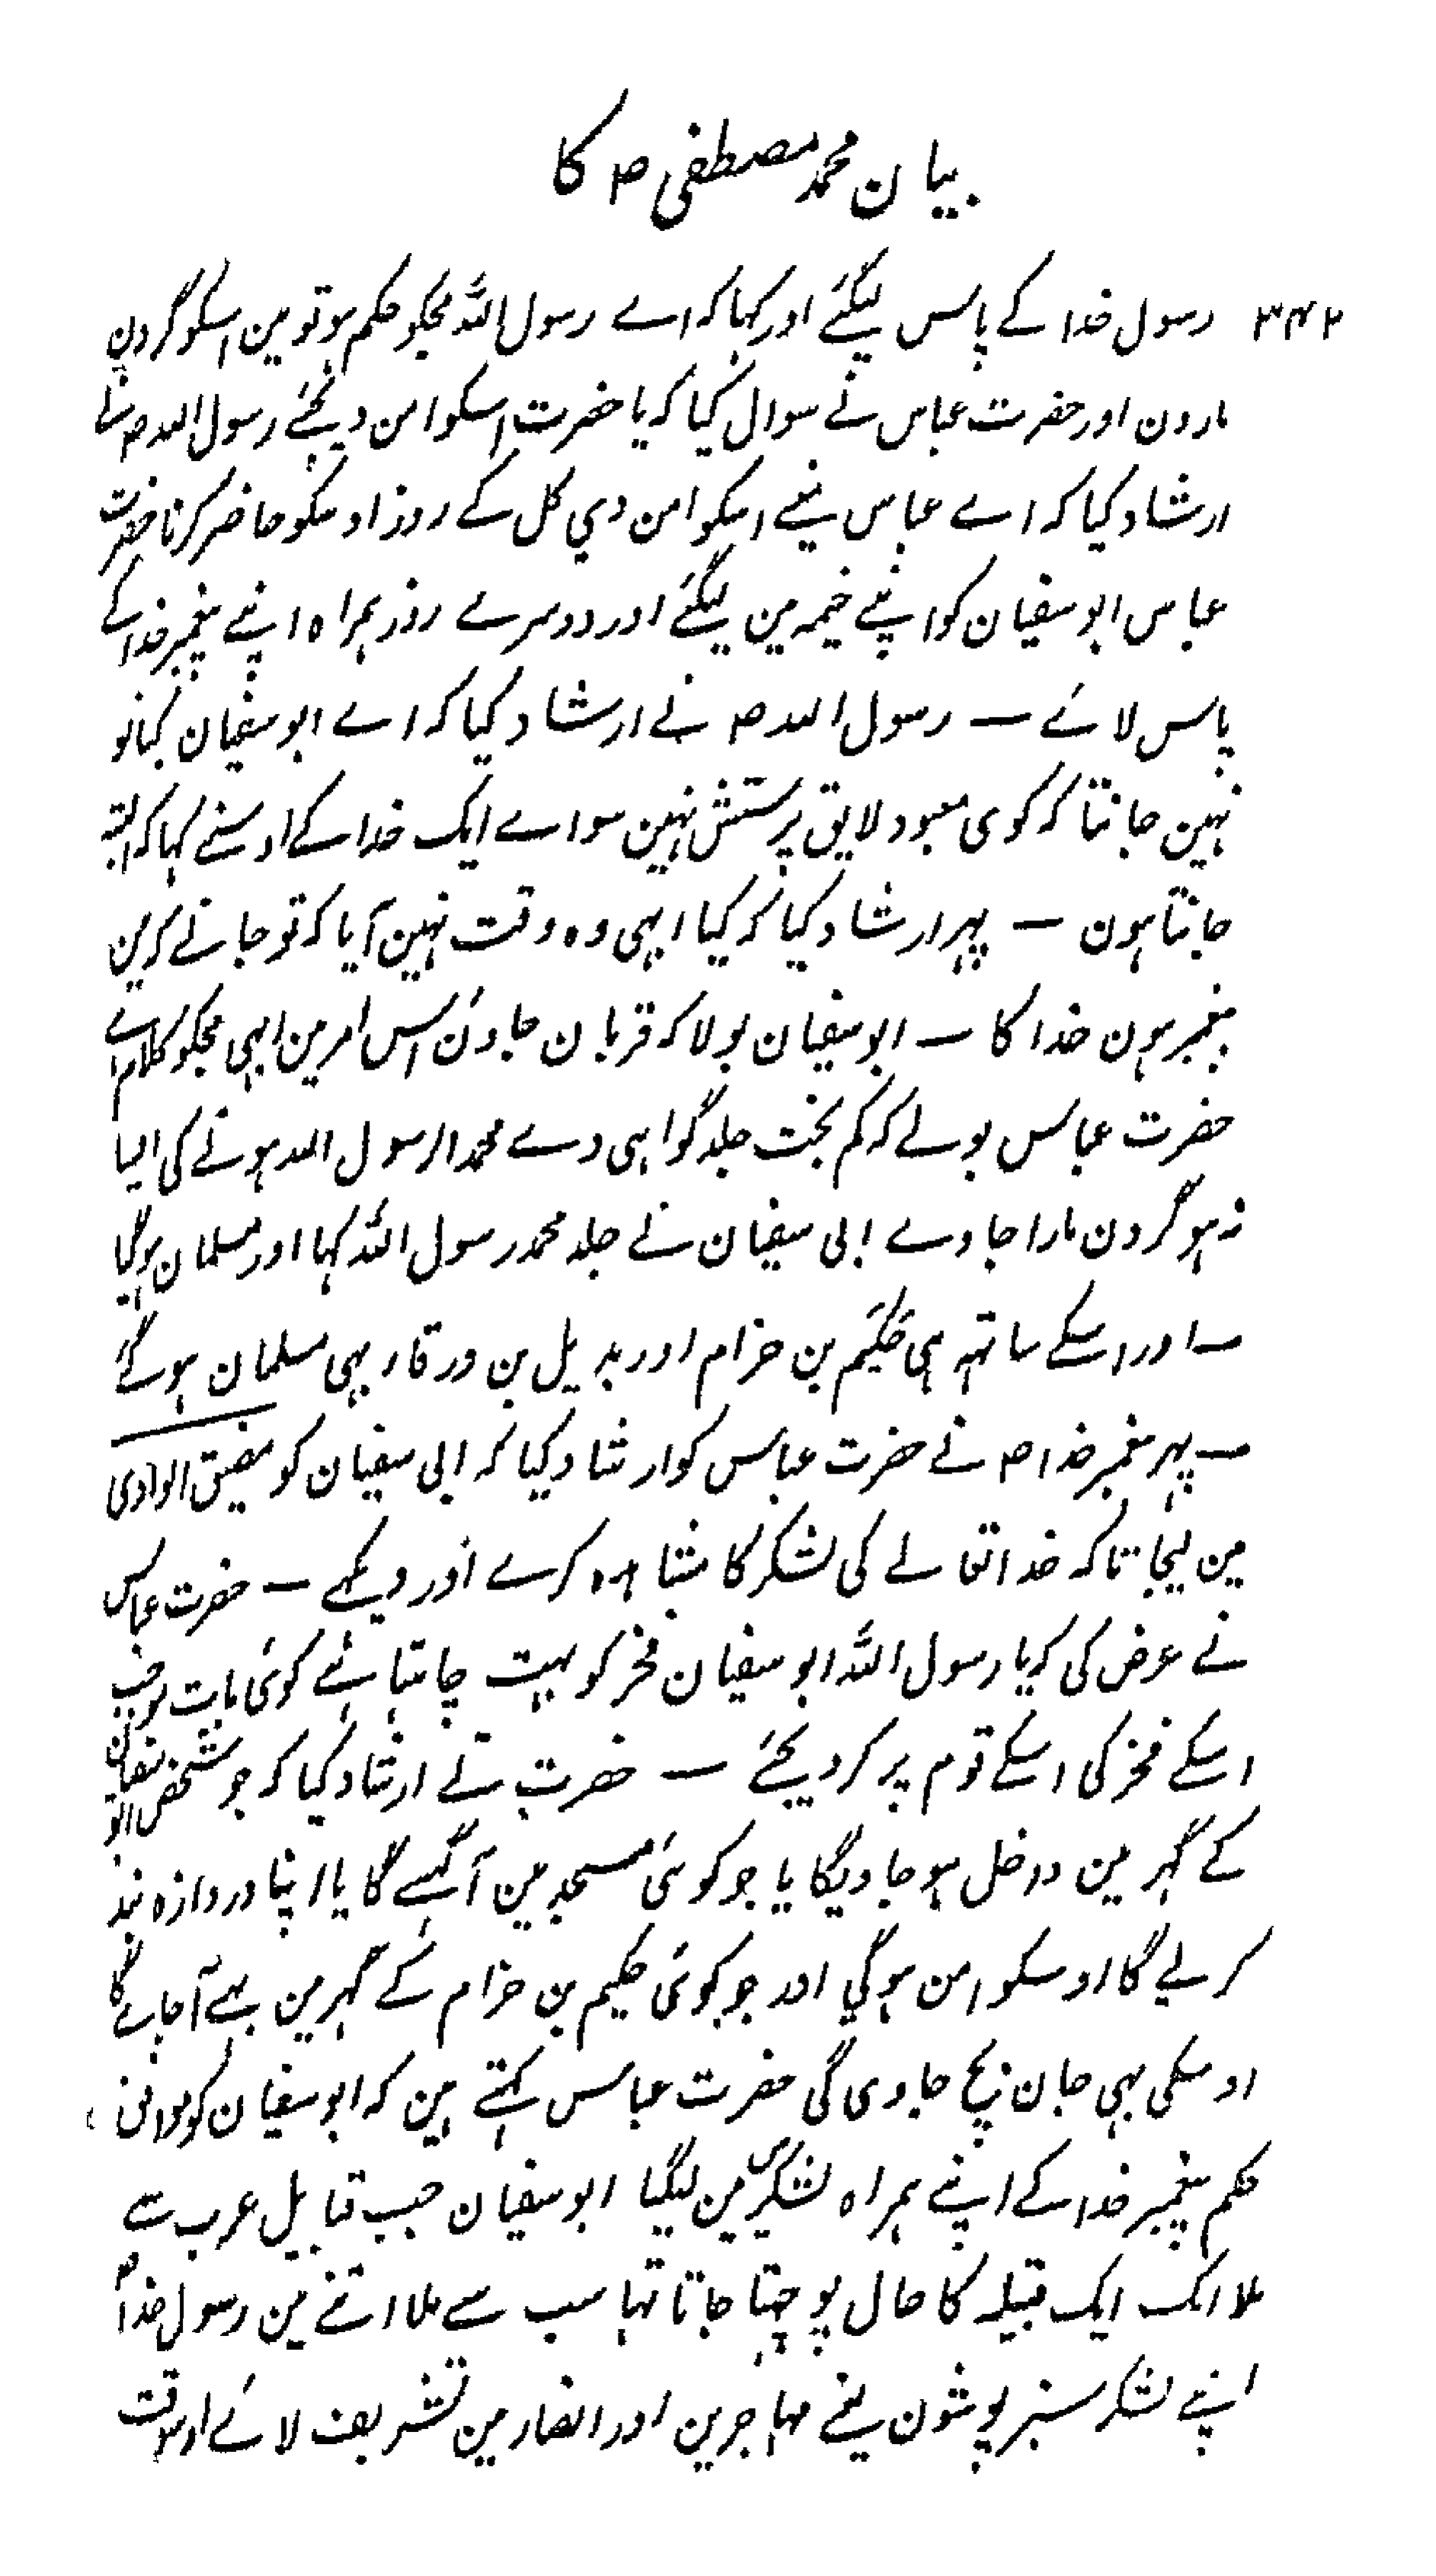 بیان محمد مصطفی ص کا
۳۴۲ رسول خدا کے پاس لیگئے اور کہا کہ اے رسول اللہ مجکو حکم ہو تو مین اسکو گردن
مارون اور حضرت عباس نے سوال کیا کہ یا حضرت اسکو امن دیجئے رسول اللہ ص نے
ارشاد کیا کہ اے عباس مینے اسکو امن دي کل کے روز اوسکو حاضر کرنا حضرت
عباس ابو سفیان کو اپنے خیمہ مین لیگئے اور دوسرے روز ہمراہ اپنے پیغمبر خدا کے
پاس لائے — رسول اللہ ص نے ارشاد کیا کہ اے ابو سفیان کیا تو
نہین جانتا کہ کوی معبود لایق پرستش نہین سواے ایک خدا کے اوسنے کہا کہ البتہ
جانتا ہون — پہر ارشاد کیا کہ کیا ابہی وہ وقت نہین آیا کہ تو جانے کہ مین
پیغمبر ہون خدا کا — ابو سفیان بولا کہ قربان جاون اس امر مین ابہی مجکو کلام ہے
حضرت عباس بولے کہ کم بخت جلد گواہی دے محمد الرسول اللہ ہونے کی ایسا
نہ ہو گردن مارا جاوے ابی سفیان نے جلد محمد رسول اللہ کہا اور مسلمان ہوگیا
— اور اسکے ساتہہ ہی حکیم بن حزام اور بدیل بن ورقا بہی مسلمان ہوگئے
— پہر پیغمبر خدا ص نے حضرت عباس کو ارشاد کیا کہ ابی سفیان کو مضیق الوادی
مین لیجا تاکہ خداتعالے کی لشکر کا مشاہدہ کرے اور دیکہے — حضرت عباس
نے عرض کی کہ یا رسول اللہ ابو سفیان فخر کو بہت چاہتا ہے کوئی بات موجب
اسکے فخر کی اسکے قوم پر کر دیجئے — حضرت نے ارشاد کیا کہ جو شخص ابو سفیان
کے گہر مین داخل ہو جاویگا یا جو کوئی مسجد مین آ گہسے گا یا اپنا دروازہ بند
کر لے گا اوسکو امن ہوگي اور جو کوئی حکیم بن حزام کے گہر مین بہے آجاے گا
اوسکی بہی جان بچ جاوی گی حضرت عباس کہتے ہین کہ ابو سفیان کو موافق
حکم پیغمبر خدا کے اپنے ہمراہ لشکر مین لیگیا ابو سفیان جب قبایل عرب سے
ملا ایک ایک قبیلہ کا حال پوچہتا جاتا تہا سب سے ملا اتنے مین رسول خدا ص
اپنے لشکر سبز پوشون یعنے مہاجرین اور انصار مین تشریف لائے اوسوقت